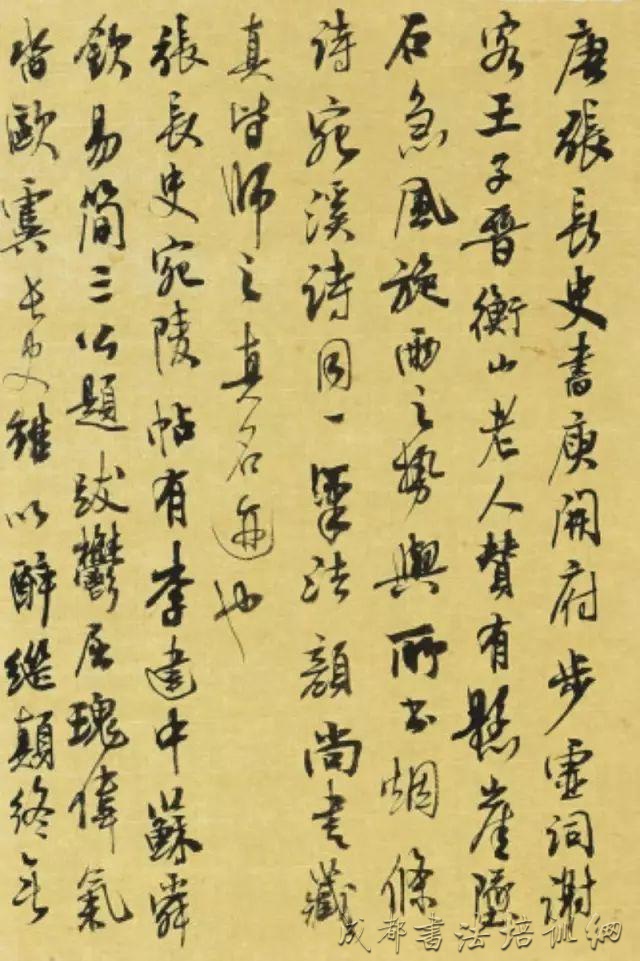 唐張長史書庾開府步虛詞謝
客王子晉衡山老人贊有懸崖墜
石急風旋雨之勢與所書烟條
詩宛溪詩同一筆法顏尚書藏
真皆師之真名迹也
張長史宛陵帖有李建中蘇舜
欽易簡三公題跋鬱屈瑰偉氣
沓歐虞長史雖以醉繼顛終無
成都書法培训網